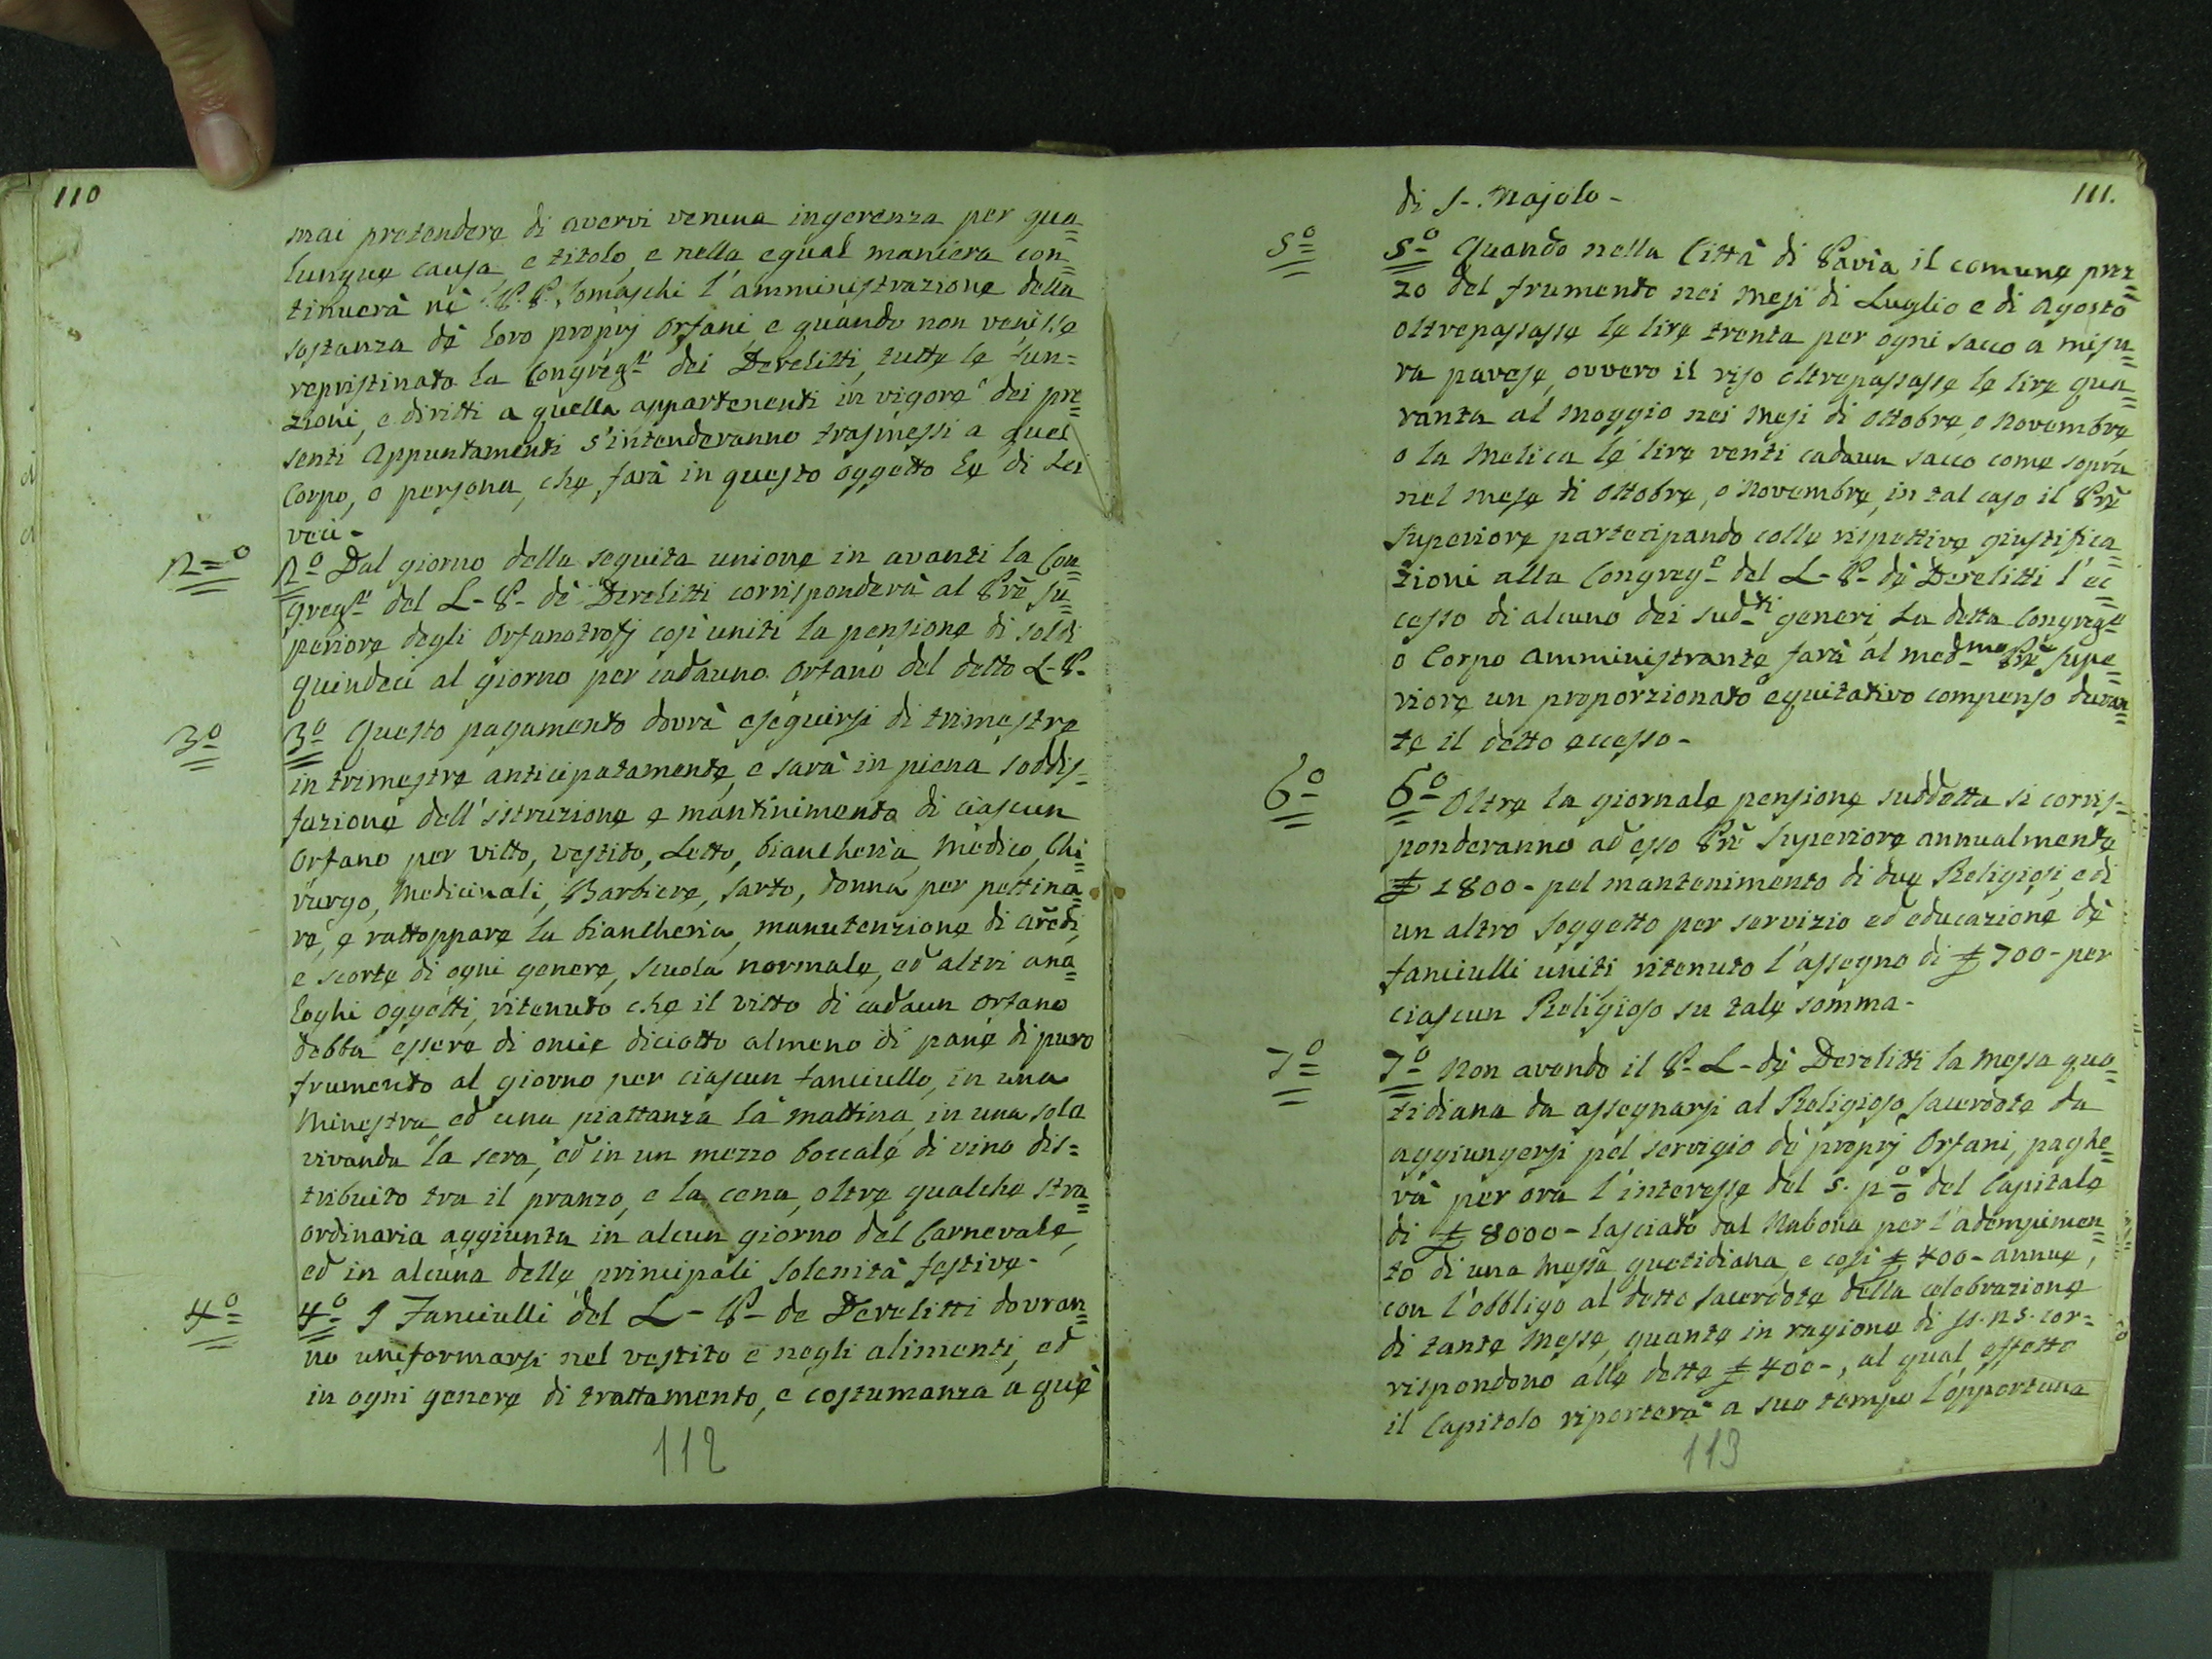 110
mai pretendere di avervi veruna ingerenza per qua=
lunque causa, e titolo, e nella egual maniera con=
tinuerà nè P. P. Somaschi l'amministrazione della
sostanza dè loro proprj Orfani, e quando non venisse
repristinata la Congreg.e dei Derelitti, tutte le fun=
zioni, e diritti a quella appartenenti in vigore dei pre=
senti Appuntamenti s'intenderanno trasmessi a quel
Corpo, o persona, che farà in questo oggetto le di Lei
veci -
2=o
2=o Dal giorno della seguita unione in avanti la Con=
greg.e del L- P- dè Derelitti corrisponderà al Prē Su=
periore degli Orfanotrofj così uniti la pensione di soldi
quindeci al giorno per cadauno Orfano del detto L- P-
3=o
3=o Questo pagamento dovrà eseguirsi di trimestre
in trimestre anticipatamente, e sarà in piena soddis=
fazione dell'istruzione e mantinimento di ciascun
Orfano per vitto, vestito, Letto, biancheria, Medico, Chi=
rurgo, Medicinali, Barbiere, Sarto, donna per pettina=
re, e rattoppare la biancheria, manutenzione di Arēdi,
e scorte di ogni genere, scuola normale, ed altri ana=
loghi oggetti, ritenuto che il vitto di cadaun Orfano
debba essere di oncie diciotto almeno di pane di puro
frumento al giorno per ciascun fanciullo, in una
Minestra, ed una piattanza la mattina, in una sola
vivanda la sera, ed in un mezzo boccale di vino dis=
tribuito tra il pranzo, e la cena, oltre qualche stra=
ordinaria aggiunta in alcun giorno del Carnevale,
ed in alcuna delle principali Solenità festive -
4=o
4=o I Fanciulli del L- P- de Derelitti dovran=
no uniformarsi nel vestito e negli alimenti, ed
in ogni genere di trattamento, e costumanza a què
112
111.
di S-. Majolo -
5=o
5=o Quando nella Città di Pavia il comune prez=
zo del frumento nei Mesi di Luglio e di Agosto
oltrepassasse le lire trenta per ogni sacco a misu=
ra pavese, ovvero il riso oltrepassasse le lire qua=
ranta al Moggio nei Mesi di Ottobre, o Novembre
o la Melica le lire venti cadaun sacco come sopra
nel mese di Ottobre, o Novembre, in tal caso il Prē
Superiore partecipando colle rispettive giustifica=
zioni alla Congreg.e del L- P- dè Derelitti l'ec=
cesso di alcuno dei sud.ti generi La detta Congreg.e
o Corpo Amministrante farà al med.mo Prē Supe=
riore un proporzionato equitativo compenso duran=
te il detto eccesso -
6=o
6=o Oltre la giornale pensione suddetta si corris=
ponderanno ad esso Prē Superiore annualmente
£ 1800 - pel mantenimento di due Religiosi, e di
un altro Soggetto per servizio ed educazione dè
fanciulli uniti, ritenuto l'assegno di £ 700 - per
ciascun Religioso su tale somma -
7=o
7=o Non avendo il P- L- dè Derelitti la Messa quo=
tidiana da assegnarsi al Religioso Sacerdote da
aggiungersi pel servigio dè proprj Orfani, paghe=
rà per ora l'interesse del 5. p o/o del Capitale
di £ 8000 - lasciato dal Nabona per l'adempimen=
to di una Messa quotidiana, e così £ 400 - annue,
con l'obbligo al detto Sacerdote della celebrazione
di tante Messe, quante in ragione di cor=
rispondono alle dette £ 400 -, al qual effetto
il Capitolo riporterà a suo tempo l'opportuna
113